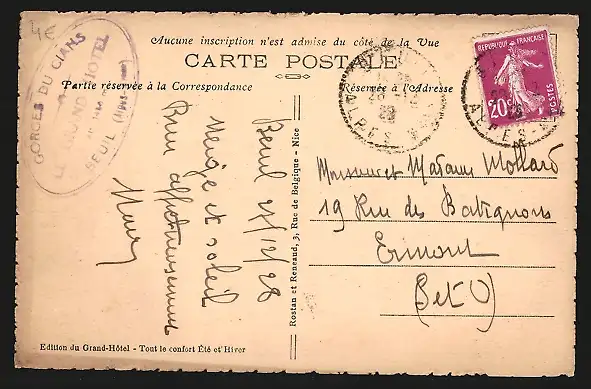 4€
Aucune inscription n'est admise du côté de la Vue
CARTE POSTALE
Partie réservée à la Correspondance
Réservée à l'Adresse
GORGES DU CIANS
HOTEL
BEUIL
REPUBLIQUE FRANÇAISE
20c
POSTES
ALPES-M
Beuil 27/12/28
Neige et soleil
Bien affectueusement
Monsieur et Madame Mollard
19 Rue des Batignons
Ermont
(S et O)
Rostan et Reneaud, 3, Rue de Belgique - Nice
Edition du Grand-Hôtel - Tout le confort Été et Hiver